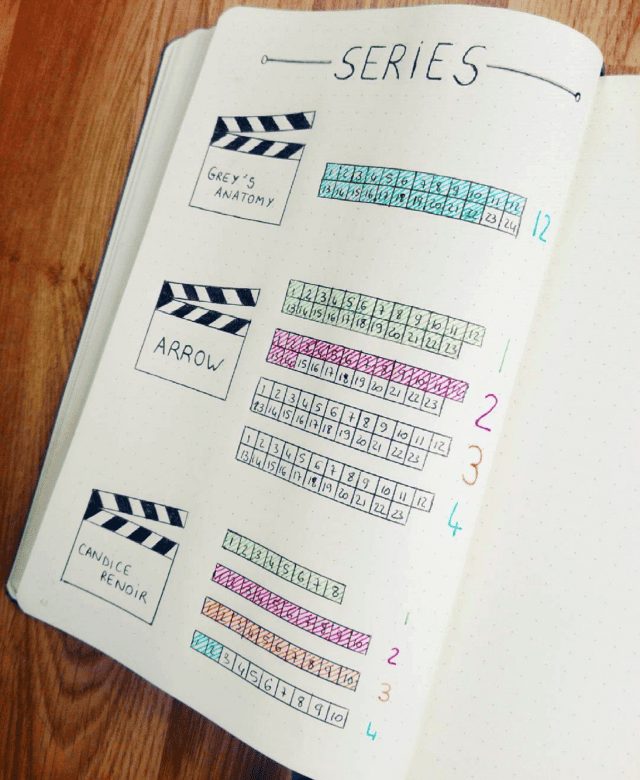 SERIES
GREY'S
ANATOMY
1 2 3 4 5 6 7 8 9 10 11 12
13 14 15 16 17 18 19 20 21 22 23 24
12
ARROW
1 2 3 4 5 6 7 8 9 10 11 12
13 14 15 16 17 18 19 20 21 22 23
1
15 16 17 18 19 20 21 22 23
2
1 2 3 4 5 6 7 8 9 10 11 12
13 14 15 16 17 18 19 20 21 22 23
3
1 2 3 4 5 6 7 8 9 10 11 12
13 14 15 16 17 18 19 20 21 22 23
4
CANDICE
RENOIR
1 2 3 4 5 6 7 8
1
1 2 3 4 5 6 7 8 9 10
2
1 2 3 4 5 6 7 8 9 10
3
3 4 5 6 7 8 9 10
4